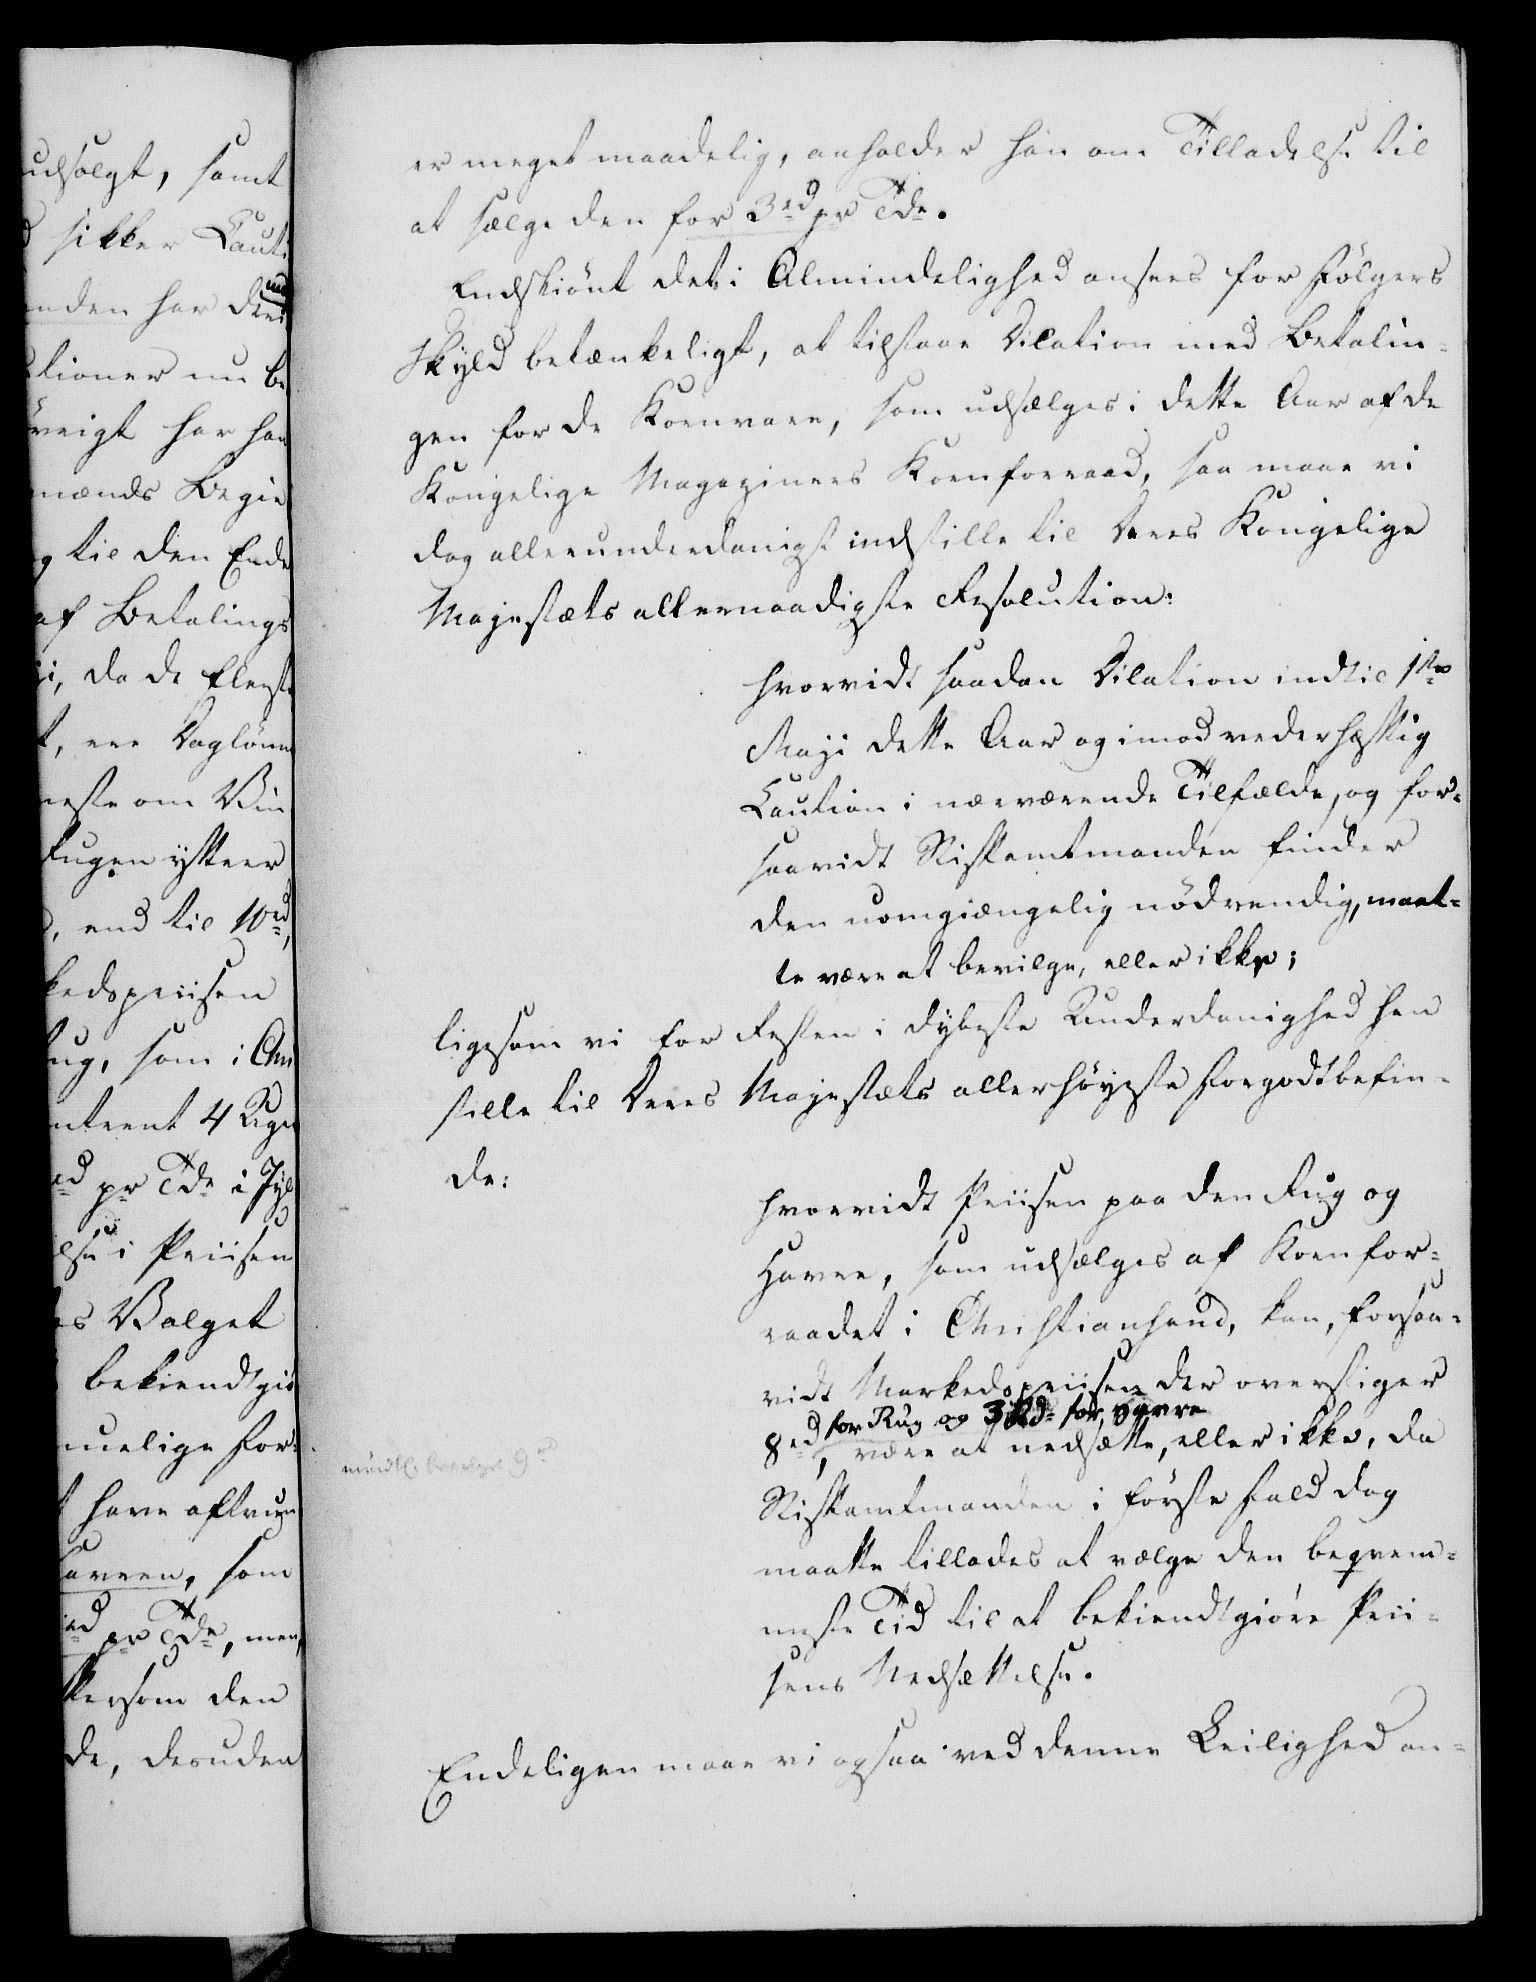 udsolgt, samt
sikker Cauti
nden har
tioner nu be
vrigt har han
mænds Begie
g til den Ende
af Betalings
i, da de fleeste
t, ere Daglønn
neste om Vin
Rugen yttrer
, end til 10 rd,
kedspriisen
ug, som i Chri
ntrent 4 Rgr
rd pr Tde i Jyl
lse i Priisen
es Valget
bekiendtgiø
melige For-
t have aftrun
Havren, som
rd pr Tde, men,
tersom den
de, desuden
er meget maadelig, anholder han om Tilladelse til
at sælge den for 3 rd pr Tde.
Endskiönt det i Almindelighed ansees for Fölgers
Skyld betænkeligt, at tilstaae Dilation med Betalin-
gen for de Kornvare, som udsælges i dette Aar af de
Kongelige Magaziners Kornforraad, saa maae vi
dog allerunderdanigst indstille til Deres Kongelige
Majestæts allernaadigste Resolution:
hvorvidt saadan Dilation indtil 1ste
Maji dette Aar og imod vederhæftig
Caution i nærværende Tilfælde, og for-
saavidt Stiftamtmanden finder
den uomgiængelig nödvendig, maat-
te være at bevilge, eller ikke;
ligesom vi for Resten i dybeste Underdanighed hen
stille til Deres Majestæts allerhöyeste Forgodtbefin-
de:
hvorvidt Priisen paa den Rug og
Havre, som udsælges af Kornfor-
raadet i Christiansand, kan, forsaa-
vidt Markedspriisen der overstiger
for Rug og 3 Rd. for Havre
8 rd, være at nedsætte, eller ikke, da
mundtl. bevilget 9 rd
Stiftamtmanden i förste Fald dog
maatte tillades at vælge den beqvem-
meste Tid til at bekiendtgiöre Prii-
sens Nedsættelse.
Endeligen maae vi ogsaa ved denne Leilighed an-